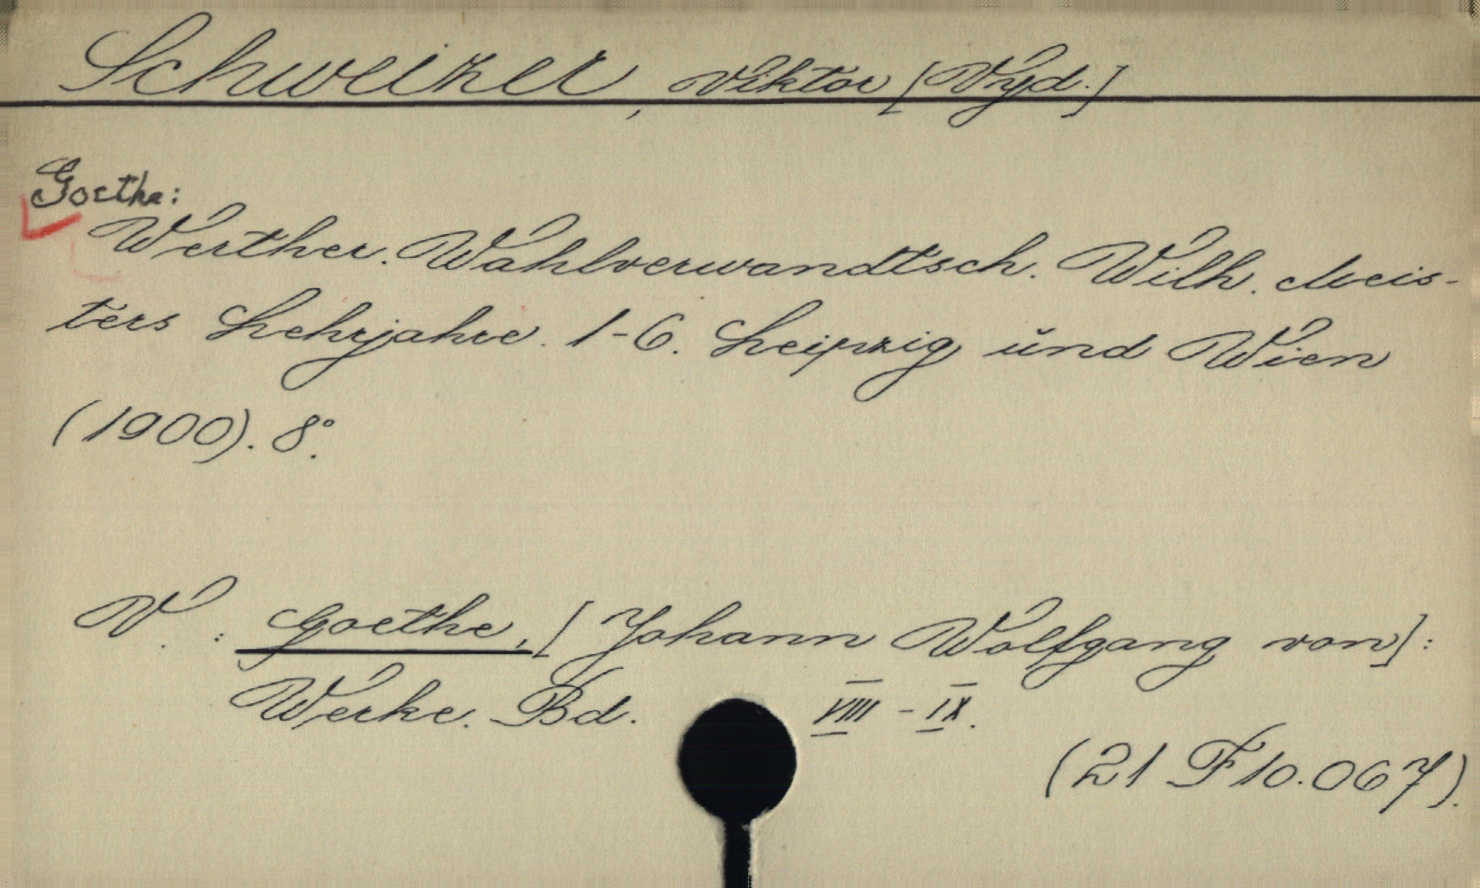 Schweizer, Viktor [Vyd.]
Goethe:
Werther. Wahlverwandtsch. Wilh. Meis-
ters Lehrjahre. 1-6. Leipzig und Wien
(1900). 8°.
V.: Goethe, [Johann Wolfgang von]:
Werke. Bd. VIII - IX.
(21 F 10.067).